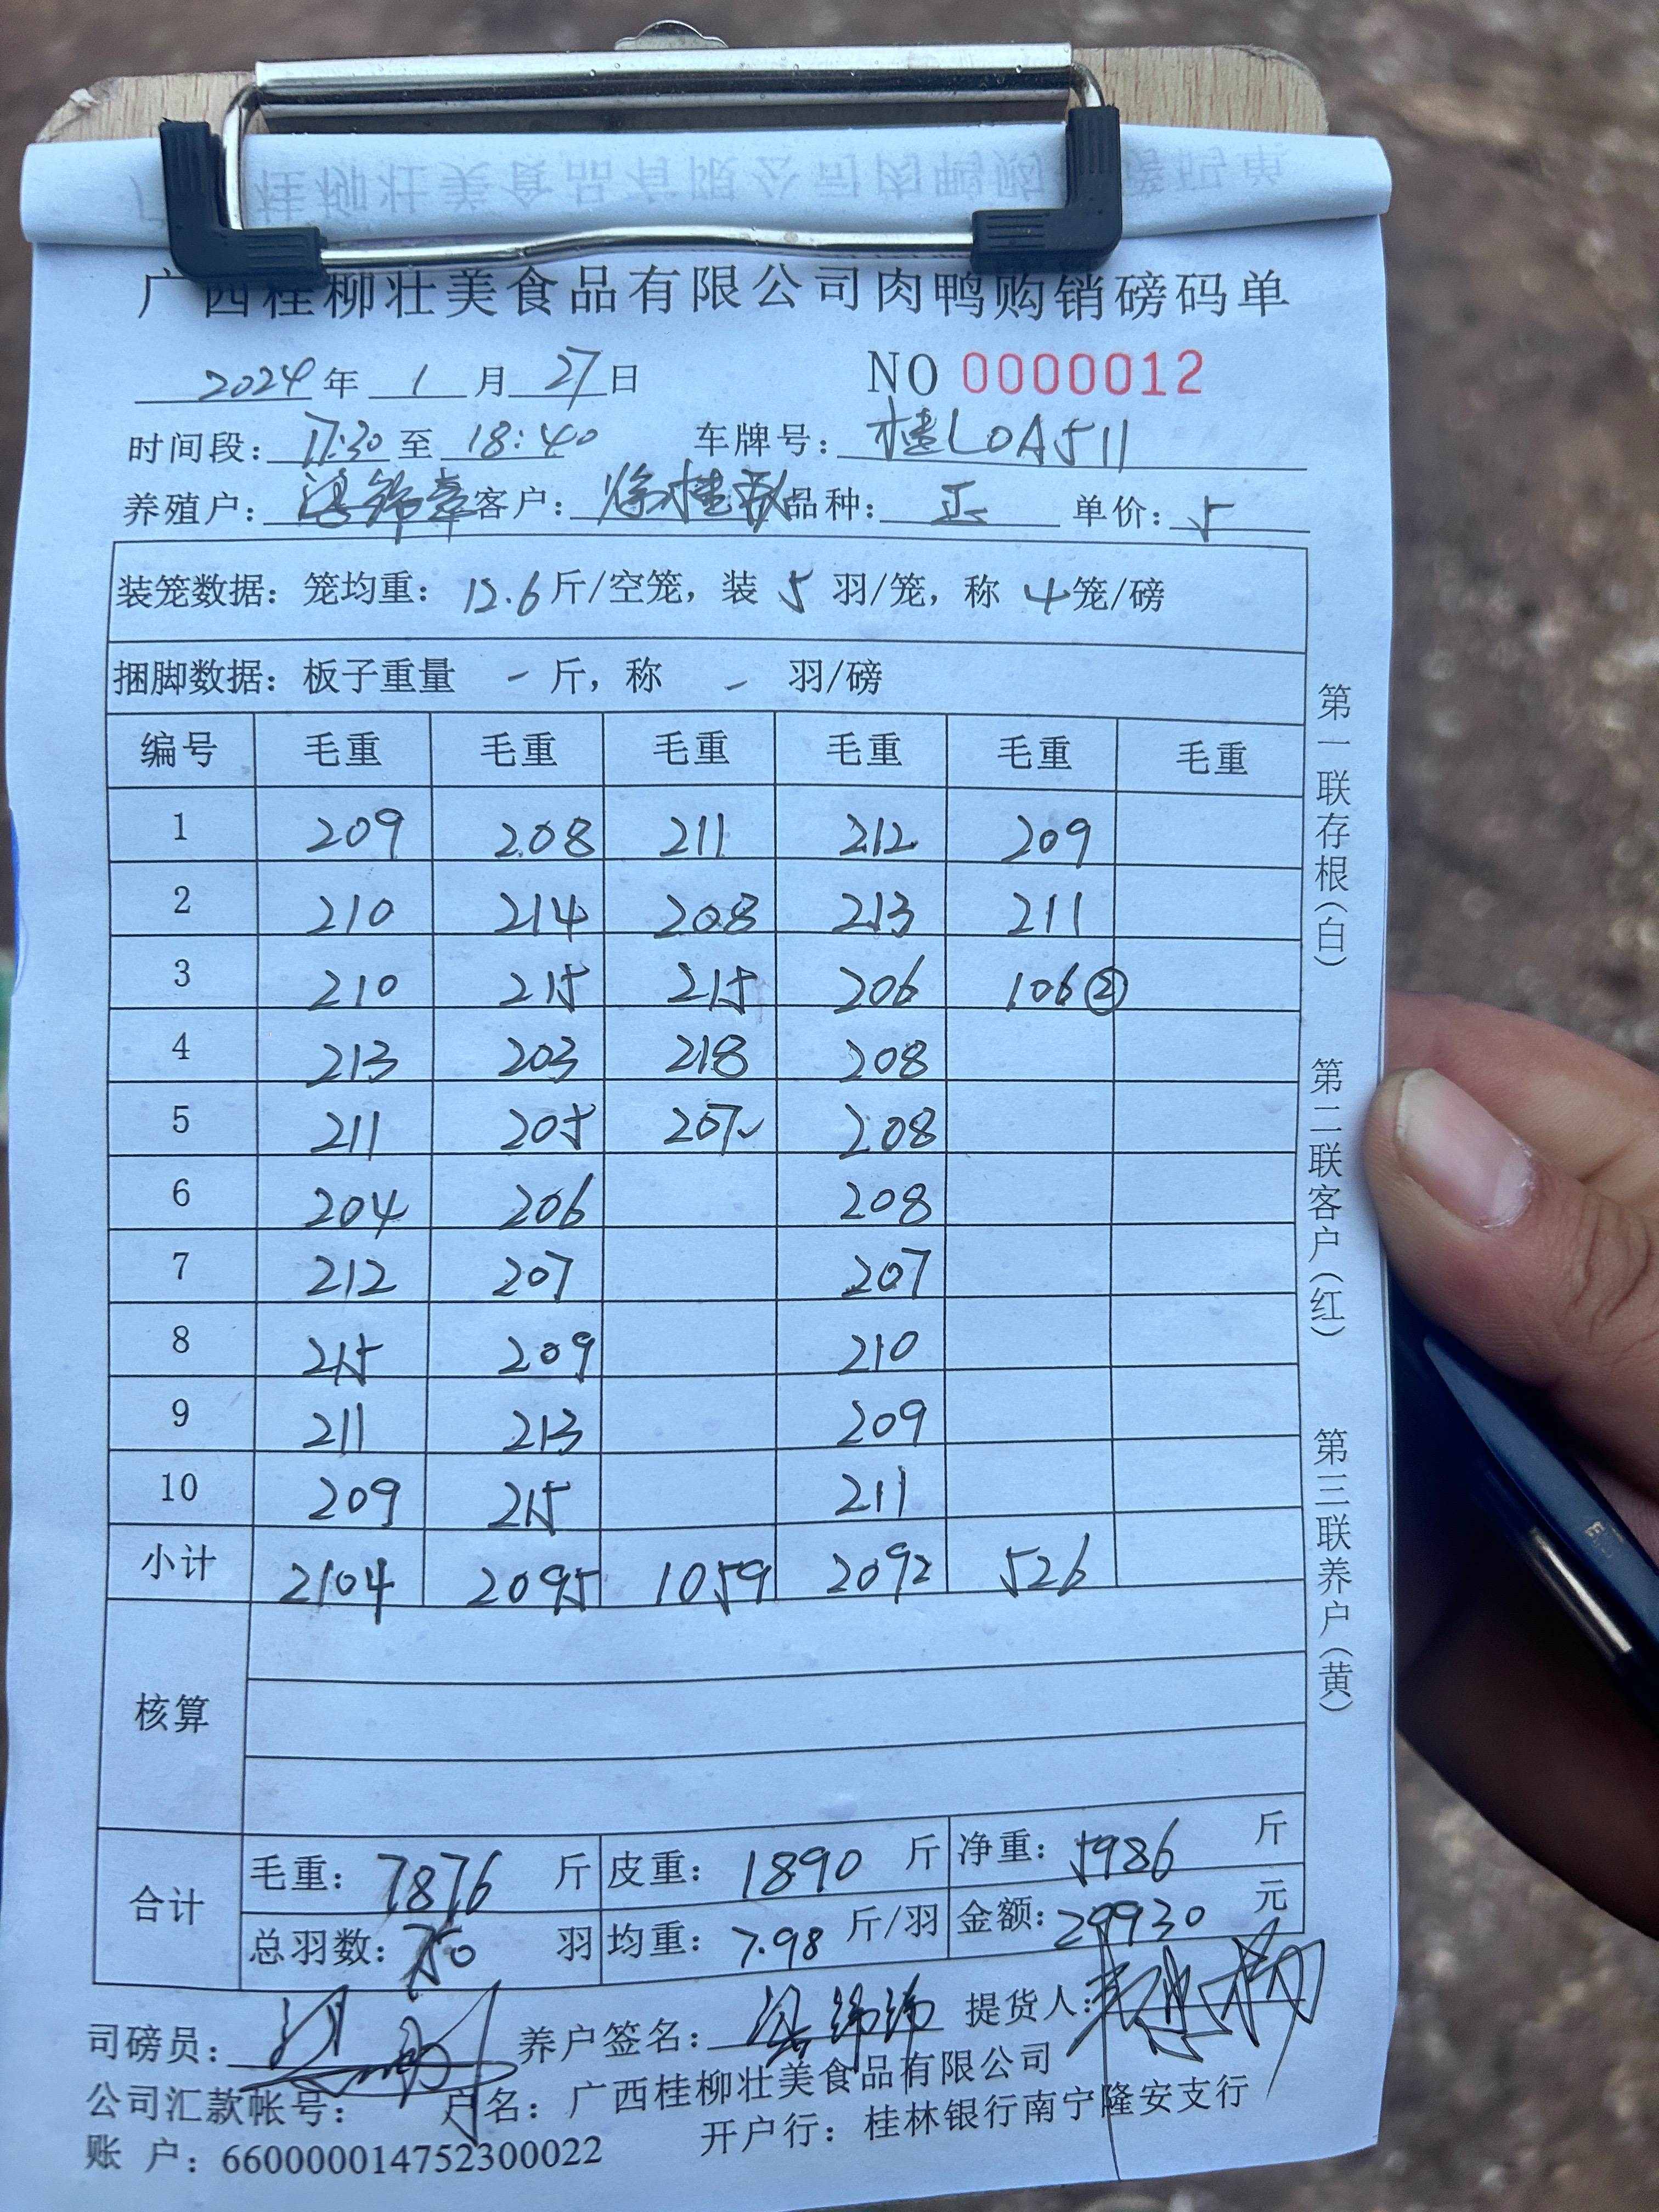 广西桂柳壮美食品有限公司肉鸭购销磅码单
2024年1月27日 NO 0000012
时间段：17:30至18:40 车牌号：桂L0A511
养殖户： 客户：徐桂 品种：正 单价：5
装笼数据：笼均重：12.6斤/空笼，装5羽/笼，称4笼/磅
捆脚数据：板子重量 - 斤，称 - 羽/磅
编号 毛重 毛重 毛重 毛重 毛重 毛重
1 209 208 211 212 209
2 210 214 208 213 211
3 210 215 215 206 106②
4 213 203 218 208
5 211 205 207 208
6 204 206 208
7 212 207 207
8 215 209 210
9 211 213 209
10 209 215 211
小计 2104 2095 1059 2092 526
核算
合计 毛重：7876斤 皮重：1890斤 净重：5986斤
总羽数：750羽 均重：7.98斤/羽 金额：29930元
司磅员： 养户签名： 提货人：
公司汇款帐号： 户名：广西桂柳壮美食品有限公司
账 户：660000014752300022 开户行：桂林银行南宁隆安支行
第一联存根（白） 第二联客户（红） 第三联养户（黄）